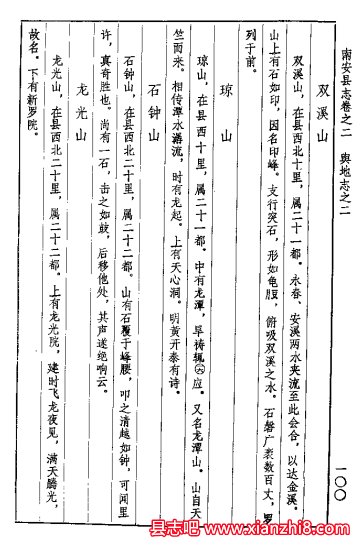 南安县志卷之二　舆地志之二
双溪山
双溪山，在县西北十里，属二十一都。永春、安溪两水夹流至此会合，以达金溪。
山上有石如印，因名印峰。支行突石，形如龟腹，俯吸双溪之水。石磐广袤数百丈，罗
列于前。
琼山
琼山，在县西十里，属二十一都。中有龙潭，旱祷辄⑥应。又名龙潭山。山自天
竺而来。相传潭水潺流，时有龙起。上有天心洞。明黄开泰有诗。
石钟山
石钟山，在县西北二十里，属二十二都。山有石覆于峰腰，叩之清越如钟，可闻里
许，真奇胜也。尚有一石，击之如鼓，后移他处，其声遂绝响云。
龙光山
龙光山，在县西北二十里，属二十二都。上有龙光院，建时飞龙夜见，满天腾光，
故名。下有新罗院。
一〇〇
县志吧 www.xianzhi8.com